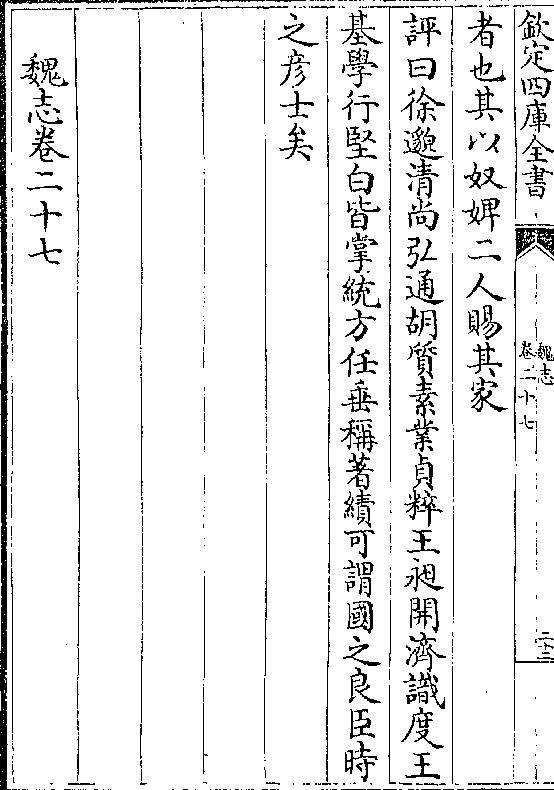 欽定四庫全書
魏志
卷二十七
二十三
者也其以奴婢二人賜其家
評曰徐邈清尚弘通胡質素業貞粹王昶開濟識度王
基學行堅白皆掌統方任垂稱著績可謂國之良臣時
之彦士矣
魏志卷二十七